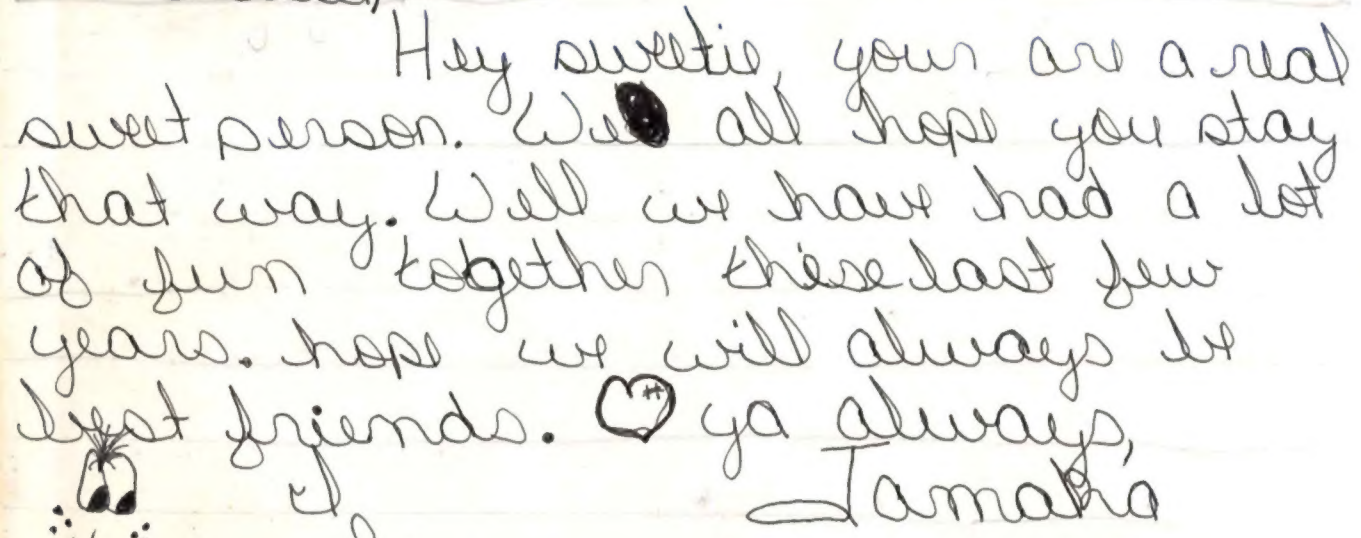 Hey sweetie, your are a real
sweet person. We all hope you stay
that way. Well we have had a lot
of fun together these last few
years. hope we will always be
best friends. ya always,